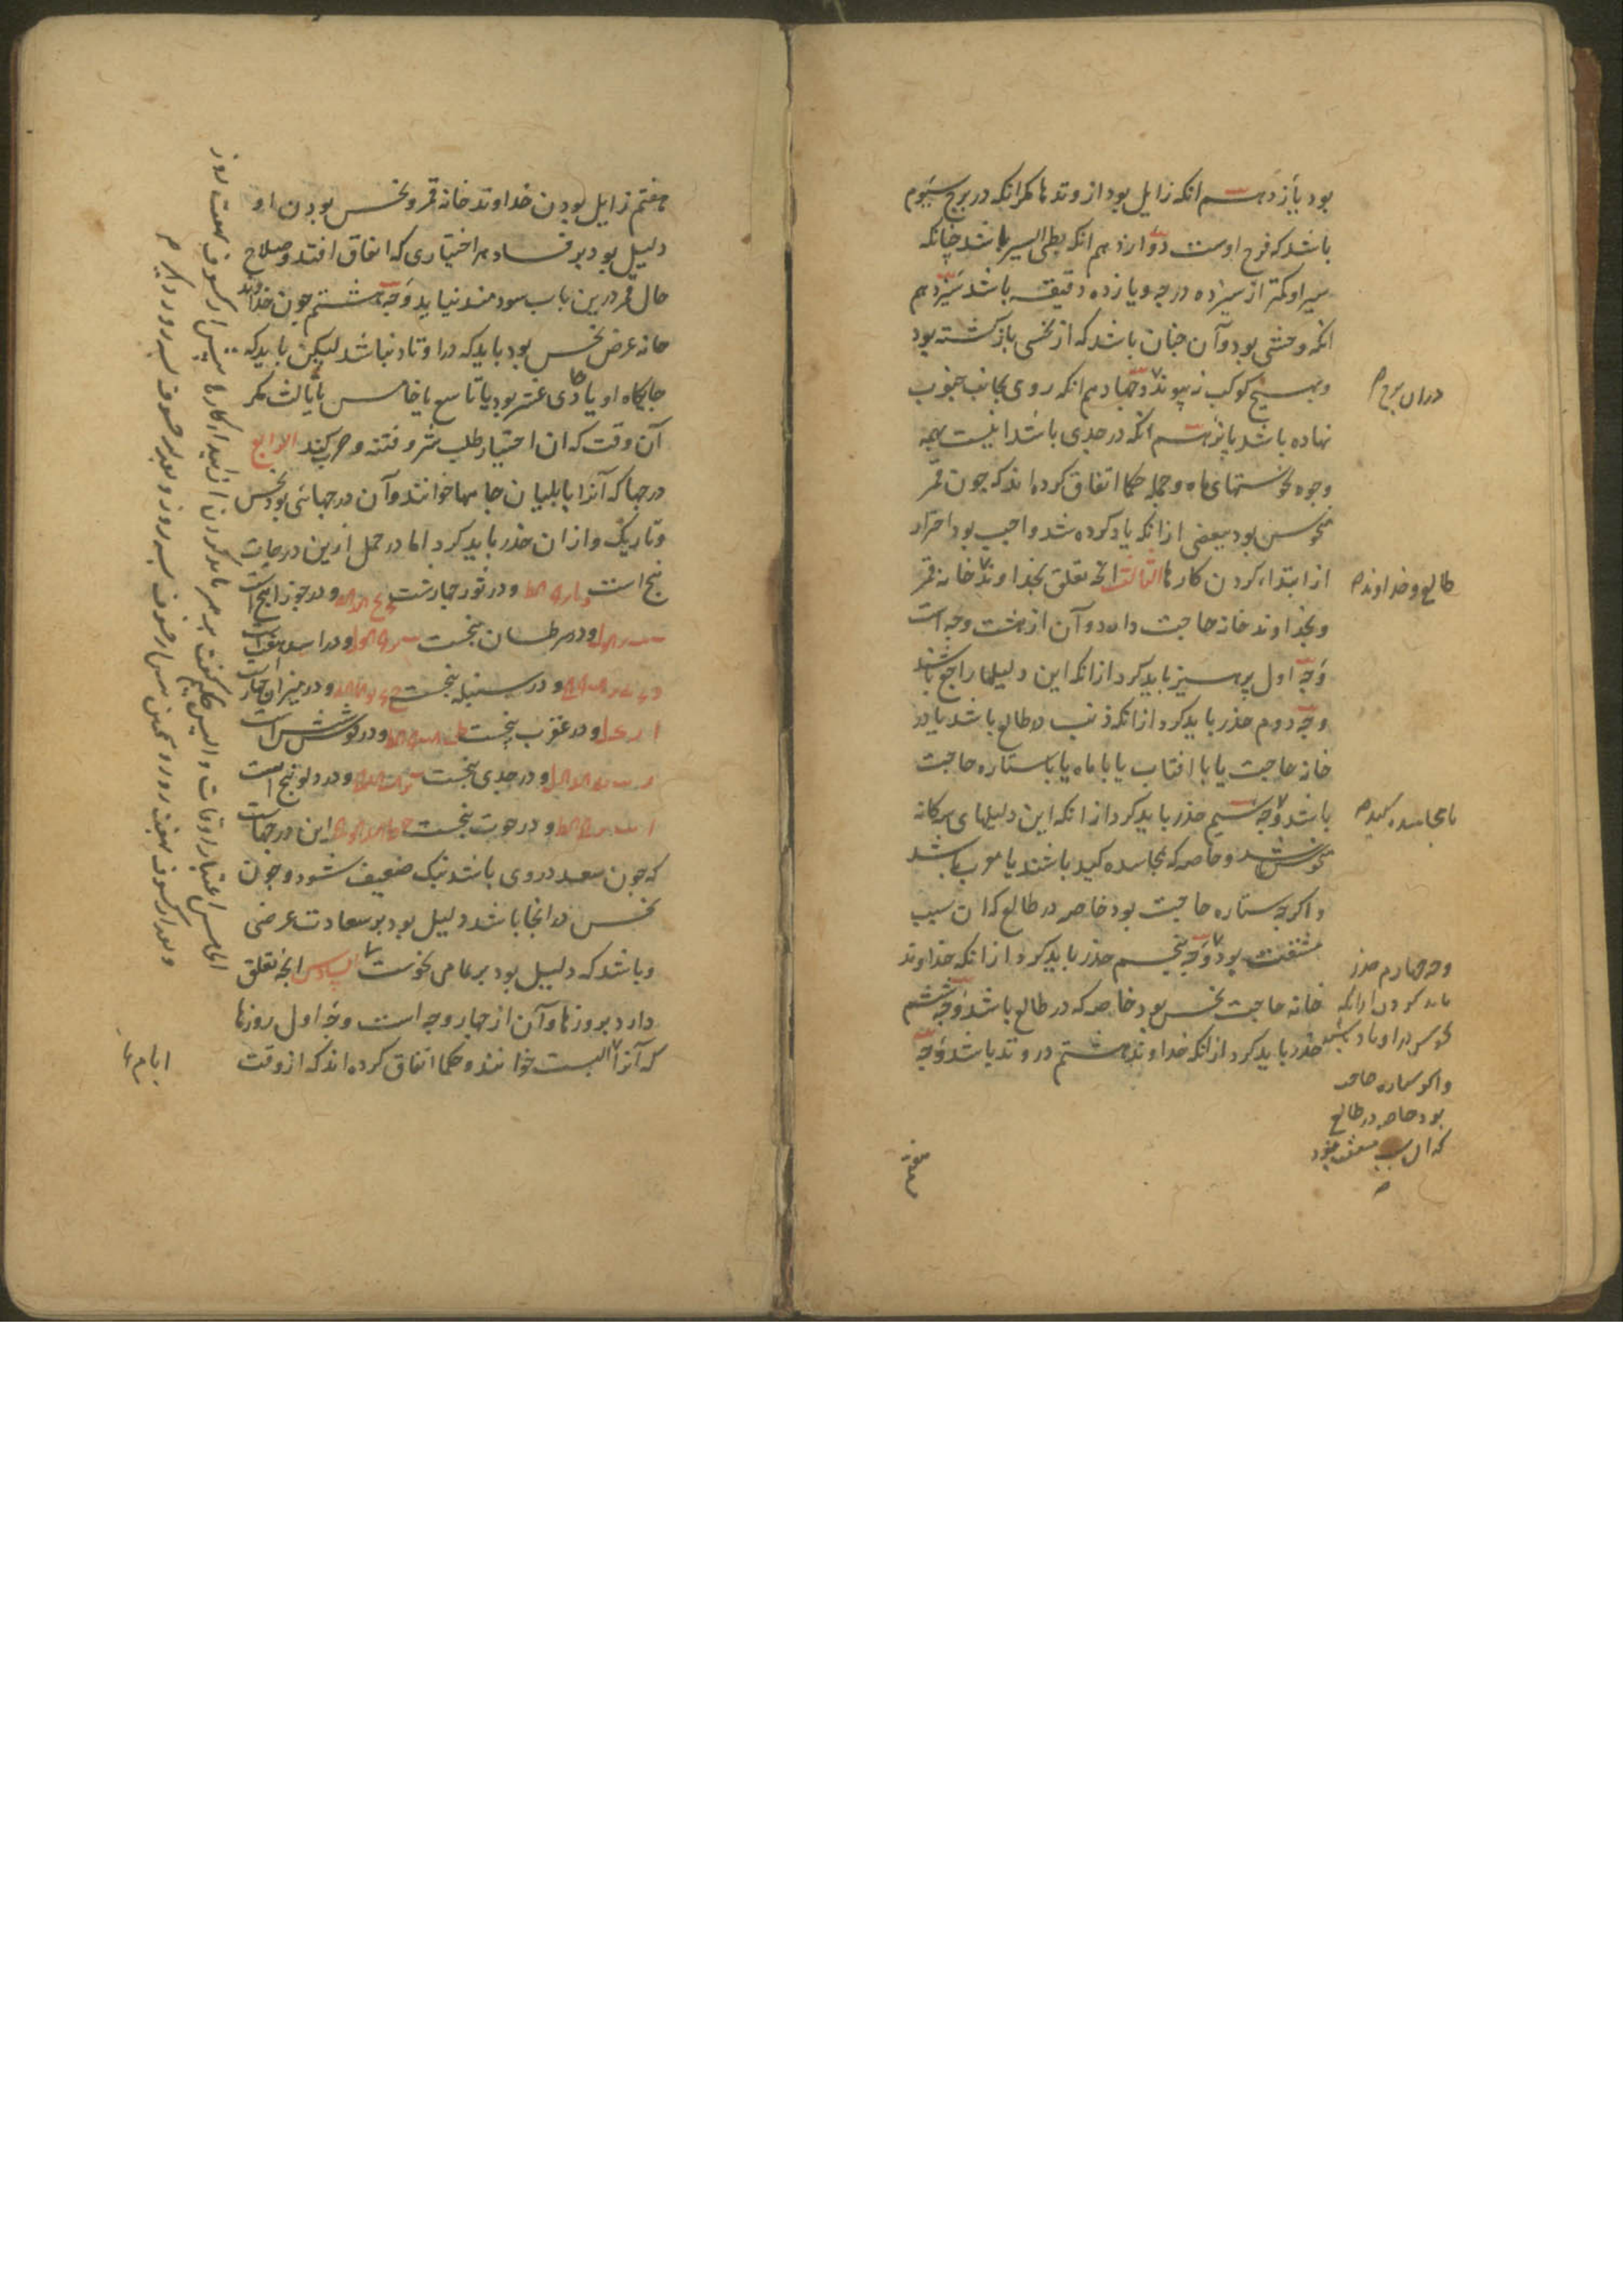 بود یازدهم انکه زایل بود از وتدها مکر انکه در برج سیوم
باشد که فرح اوست دوازدهم انکه بطی السیر باشد چنانکه
سیر او کمتر از سیزده درجه و یازده دقیقه باشد سیزدهم
انکه وحشی بود و آن چنان باشد که از نحسی بازکشته بود
و بهیچ کوکب نپیوندد چهاردهم انکه روی بجانب جنوب
نهاده باشد پانزدهم انکه در جدی باشد اینست همه
وجوه نحوستهای ماه و جمله حکما اتفاق کرده اند که چون قمر
منحوس بود ببعضی از انکه یاد کرده شد واجب بود احتراز
از ابتداء کردن کارها الثالث انچه تعلق بخداوند خانه قمر
و بخداوند خانه حاجت دارد و آن از هشت وجه است
وجه اول پرهیز باید کرد از انکه این دلیلها راجع باشند
وجه دوم حذر باید کرد از انکه ذنب در طالع باشد یا در
خانه حاجت یا با افتاب یا با ماه یا با ستاره حاجت
باشد وجه سیم حذر باید کرد از انکه این دلیلهای سه کانه
منحوس باشند و خاصه که بمجاسده کید باشند یا
و اکرچه ستاره حاجت بود خاصه در طالع که ان سبب
مشقت بود وجه پنجم حذر باید کرد از انکه خداوند
خانه حاجت نحس بود خاصه که در طالع باشد وجه ششم
حذر باید کرد از انکه خداوند هشتم در وتد باشد وجه
دران برج م
طالع و خداوند م
با مجاسده کید م
وجه چهارم حذر
باید کردن از انکه
نحوس در اوتاد باشند
و اکر ستاره حاجت
بود خاصه در طالع
که ان سبب مشقت بود
هفتم زایل بودن خداوند خانه قمر و نحس بودن او
دلیل بود بر فساد هر اختیاری که اتفاق افتد و صلاح
حال قمر درین باب سودمند نیاید وجه هشتم چون خداوند
خانه غرض نحس بود باید که در اوتاد نباشد لیکن باید که
جایکاه او یا حادی عشر بود یا تاسع یا خامس یا ثالث مکر
آن وقت که ان اختیار طلب شر و فتنه و حرب کنند الرابع
درجها که آنرا بابلیان جامها خوانند و آن درجهائی بود نحس
و تاریک و از ان حذر باید کرد اما در حمل ازین درجات
پنج است و در ثور چهارست و در جوزا پنج است
و در سرطان پنجست و در اسد
و در سنبله پنجست و در میزان چهار است
و در عقرب پنجست و در قوس شش است
و در جدی پنجست و در دلو پنج است
و در حوت پنجست این درجهاست
که چون سعد در وی باشد نیک ضعیف شود و چون
نحس در انجا باشد دلیل بود بر سعادت عرضی
و باشد که دلیل بود بر تمامی نحوست السادس انچه تعلق
دارد بروزها و آن از چهار وجه است وجه اول روزها
که آنرا البست خوانند و حکما اتفاق کرده اند که از وقت
الخامس اعتبار اوقات والیس حکیم کفت پرهیز باید کردن از ابتداء کارها پیش از کسوف بهفت روز
و بعد از کسوف بهفت روز و همچنین پیش از خسوف بسه روز و بعد از خسوف بسه روز دیکر م
ایام ها